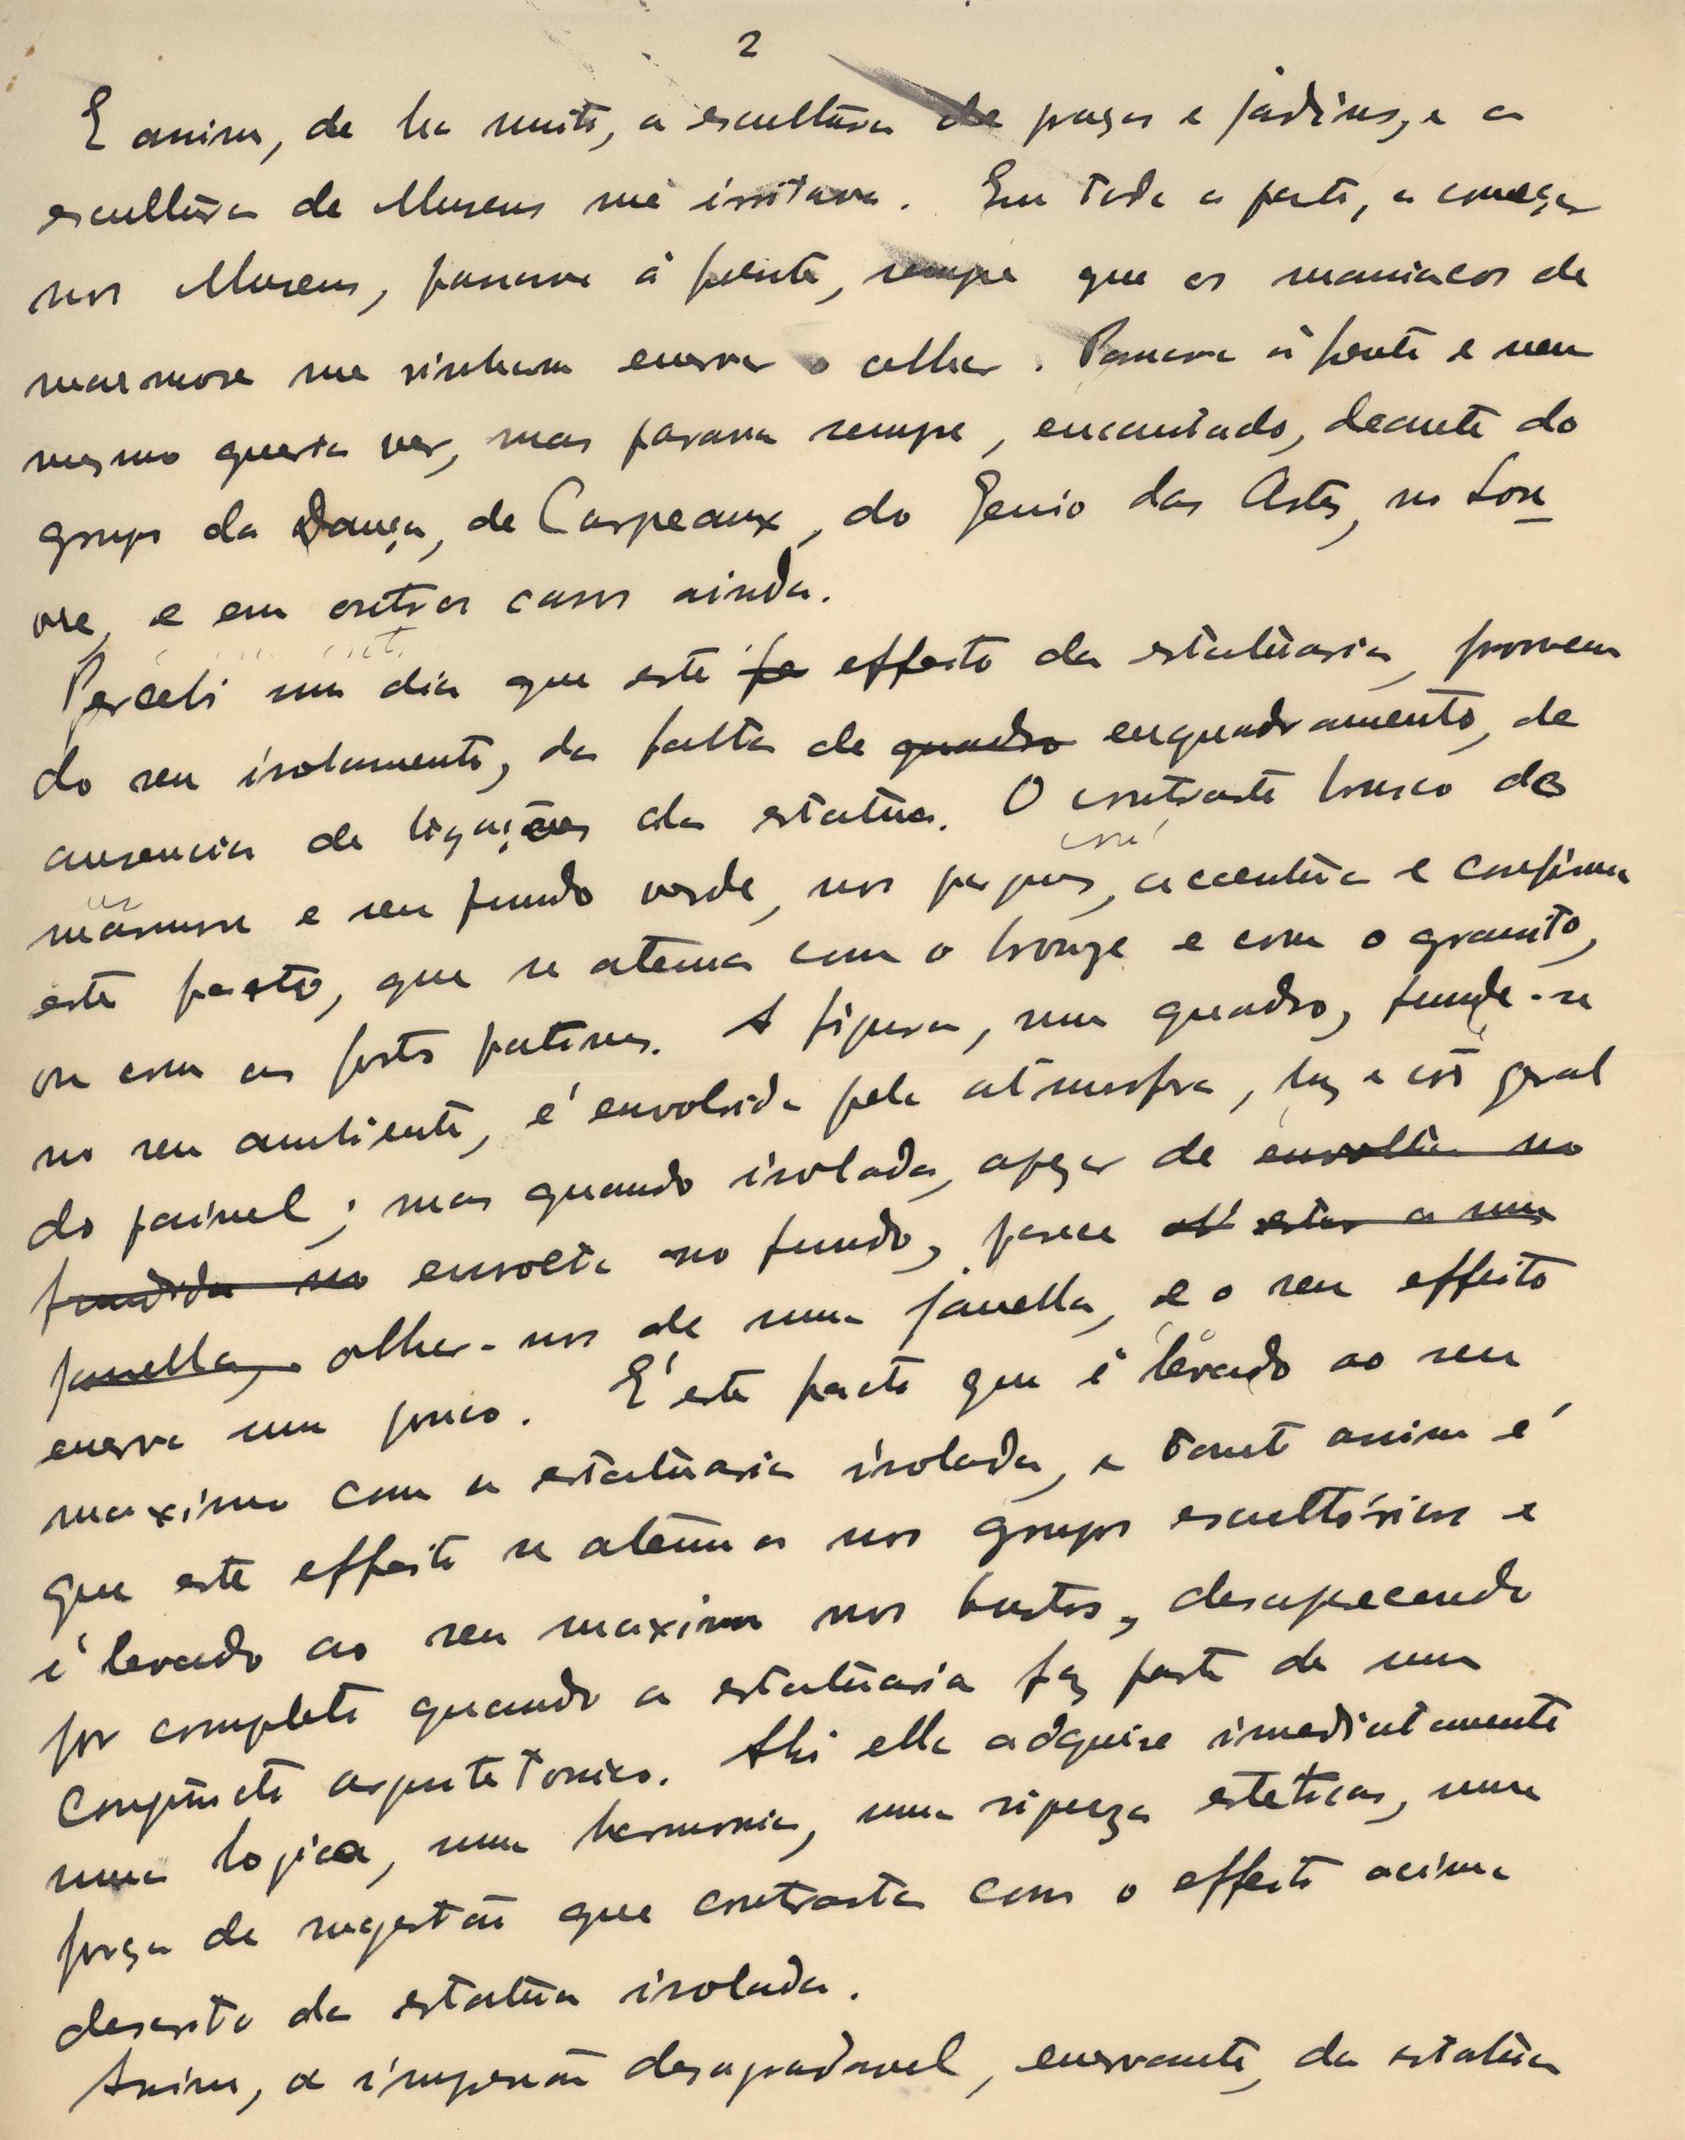 2
E assim, de ha muito, a escultura de praças e jardins, e a
escultura de Museus me irritava. Em toda a parte, a começar
nos Museus, passava á frente, sempre que os maniacos de
marmore me vinham enervar o olhar. Passava á frente e nem
mesmo queria ver, mas parava sempre, encantado, deante do
grupo da Dança, de Carpeaux, do Genio das Artes, no Lou
vre, e em outros casos ainda.
Percebi um dia que este fa effeito da estatuaria, provem
do seu isolamento, da falta de quadro enquadramento, de
ausencia de ligações da estatua. O contraste brusco do
marmore e seu fundo verde, nos parques, accentúa e confirma
este facto, que se atenua com o bronze e com o granito,
ou com as fortes patinas. A figura, num quadro, funde-se
no seu ambiente, é envolvida pela atmosfera, luz e côr geral
do painel; mas quando isolada, apezar de envolta no
fundida no envolta no fundo, parece estar a uma
janella, olhar-nos de uma janella, e o seu effeito
enerva um pouco. É este facto que é levado ao seu
maximo com a estatuaria isolada, e tanto assim é
que este effeito se atenua nos grupos escultóricos e
é levado ao seu maximo nos bustos, desaparecendo
por completo quando a estatuaria faz parte de um
conjuncto arquitetonico. Ahi ella adquire imediatamente
uma logica, uma harmonia, uma riqueza esteticas, uma
força de sugestão que contrasta com o effeito acima
descrito da estatua isolada.
Assim, a impressão desagradavel, enervante, da estatua